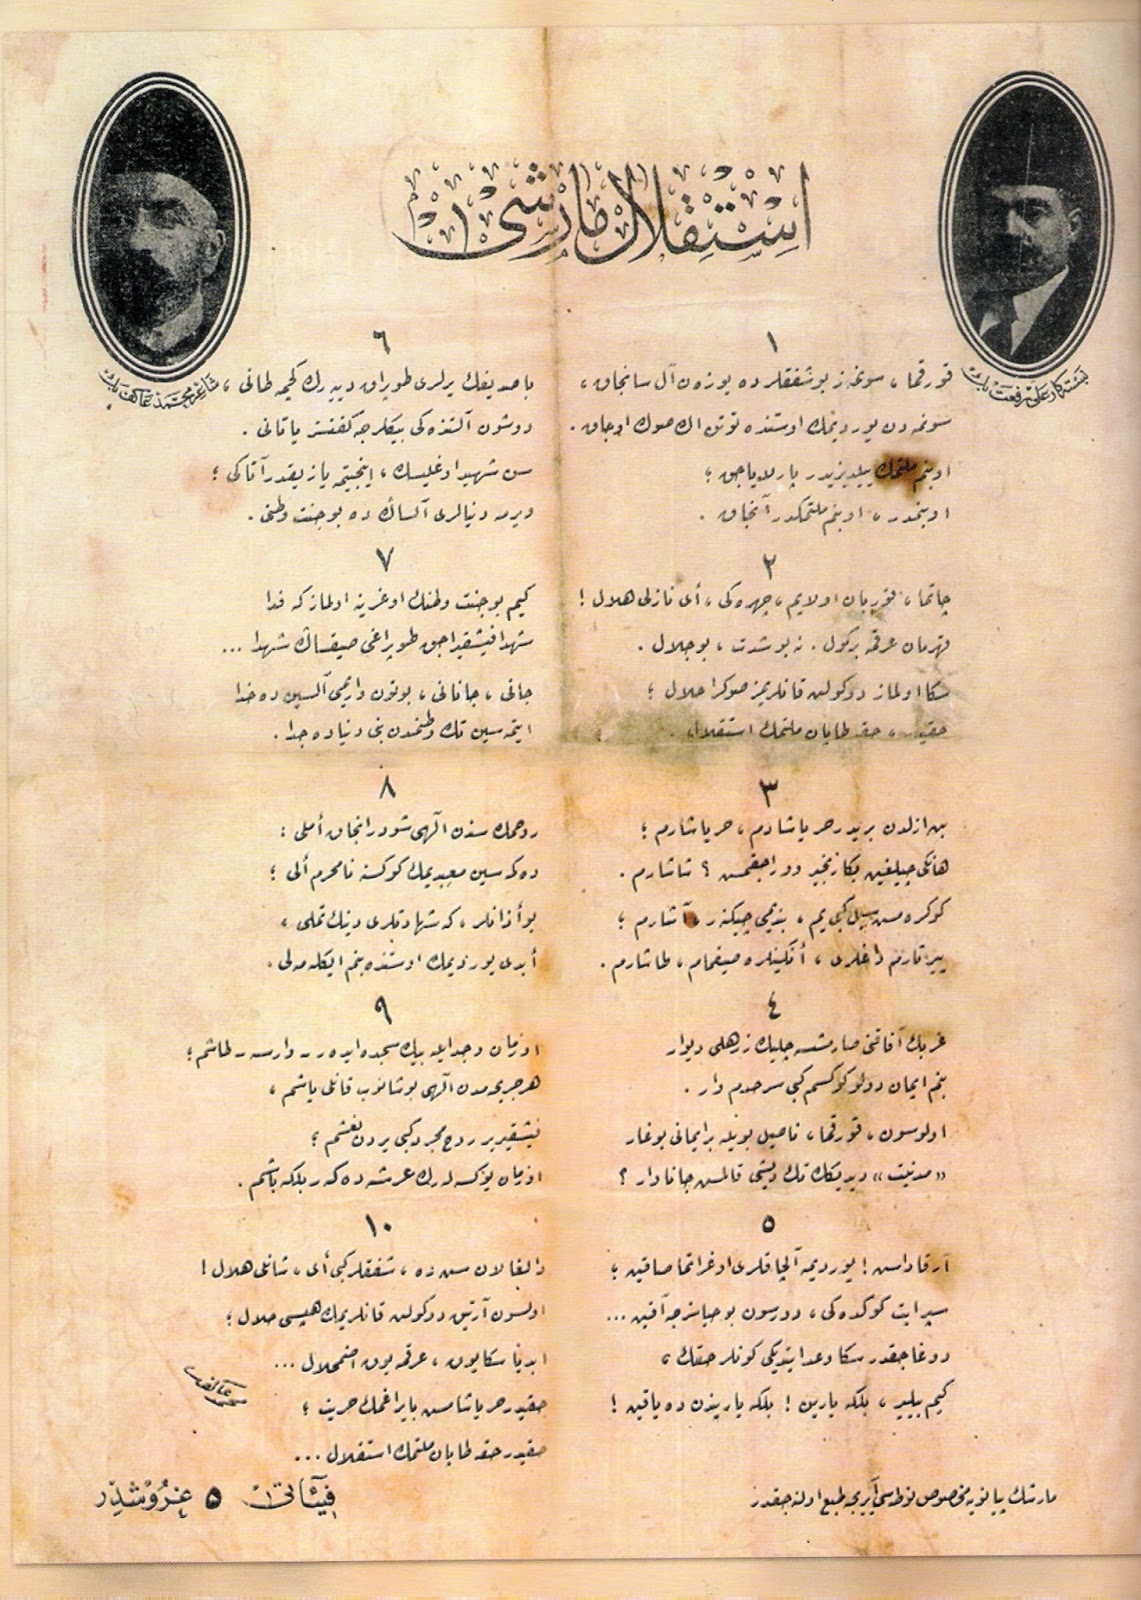 استقلال مارشی
بسته‌كار علی رفعت بك
شاعر محمد عاكف بك
١
قورقما، سونمه‌ز بو شفقلرده یوزه‌ن آل سانجاق،
سونمه‌دن یوردیمك اوستنده توتن اڭ صوڭ اوجاق.
او بنم ملتمك ییلدیزیدر پارلایاجق؛
او بنمدر، او بنم ملتمكدر آنجاق.
٢
چاتما، قوربان اولایم، چهره‌كی، أی نازلی هلال!
قهرمان عرقمه بر كول. نه بو شدت، بو جلال.
سكا اولماز دوكولن قانلریمز صوكرا حلال؛
حقیدر، حقه طاپان ملتمك استقلال.
٣
بن ازلدن بریدر حر یاشادم، حر یاشارم؛
هانكی چیلغین بكا زنجیر ووراجقمش؟ شاشارم.
كوكره‌مش سیل كبی یم، بندیمی چیكنر، آشارم؛
ییرتارم داغلری، أنكینلره صیغمام، طاشارم.
٤
غربك آفاقنی صارمشسه چلیك زرهلی دیوار
بنم ایمان دولو كوكسم كبی سرحدم وار.
اولوسون، قورقما، ناصیل بویله بر ایمانی بوغار
«مدنیت» دیدیكك تك دیشی قالمش جاناوار؟
٥
آرقاداش! یوردیمه آلچاقلری اوغراتما صاقین؛
سپر ایت كوكده‌كی، دورسون بو حیاسزجه آقین...
دوغاجقدر سكا وعد ایتدیكی كونلر حقك،
كیم بیلیر، بلكه یارین! بلكه یاریندن ده یاقین!
مارشك پیانویه مخصوص نوطه‌سی آیریجه طبع اولنه‌جقدر
٦
باصدیغك یرلری طوپراق دییه‌رك كچمه طانی،
دوشون آلتنده‌كی بیكلرجه كفنسز یاتانی.
سن شهید اوغلیسك، اینجیتمه یازیقدر آتاكی؛
ویرمه دنیالری آلساڭ ده بو جنت وطنی.
٧
كیم بو جنت وطنك اوغرینه اولماز كه فدا
شهدا فیشقیراجق طوپراغی صیقساڭ شهدا...
جانی، جانانی، بوتون واریمی آلسین ده خدا
ایتمه‌سین تك وطنمدن بنی دنیاده جدا.
٨
روحمك سندن الهی شودر انجاق أملی:
ده‌كمه‌سین معبدیمك كوكسنه نامحرم ألی؛
بو أذانلر، كه شهادتلری دینك تملی،
أبدی یوردیمك اوستنده بنم ایكله‌ملی.
٩
او زمان وجد ایله بیك سجده ایده‌ر ـ وارسه ـ طاشم؛
هر جریحه‌مدن الهی بوشانوب قانلی یاشم،
فیشقیریر روح مجرد كبی یردن نعشم؛
او زمان یوكسه‌له‌رك عرشه ده‌كه‌ر بلكه باشم.
١٠
دالغالان سن ده، شفقلر كبی أی، شانلی هلال!
اولسون آرتق دوكولن قانلریمك هپسی حلال؛
ابدیا سكا یوق، عرقمه یوق اضمحلال...
حقیدر حر یاشامش بایراغمك حریت؛
حقیدر حقه طاپان ملتمك استقلال...
محمد عاكف
فیئاتی ٥ غروشدر